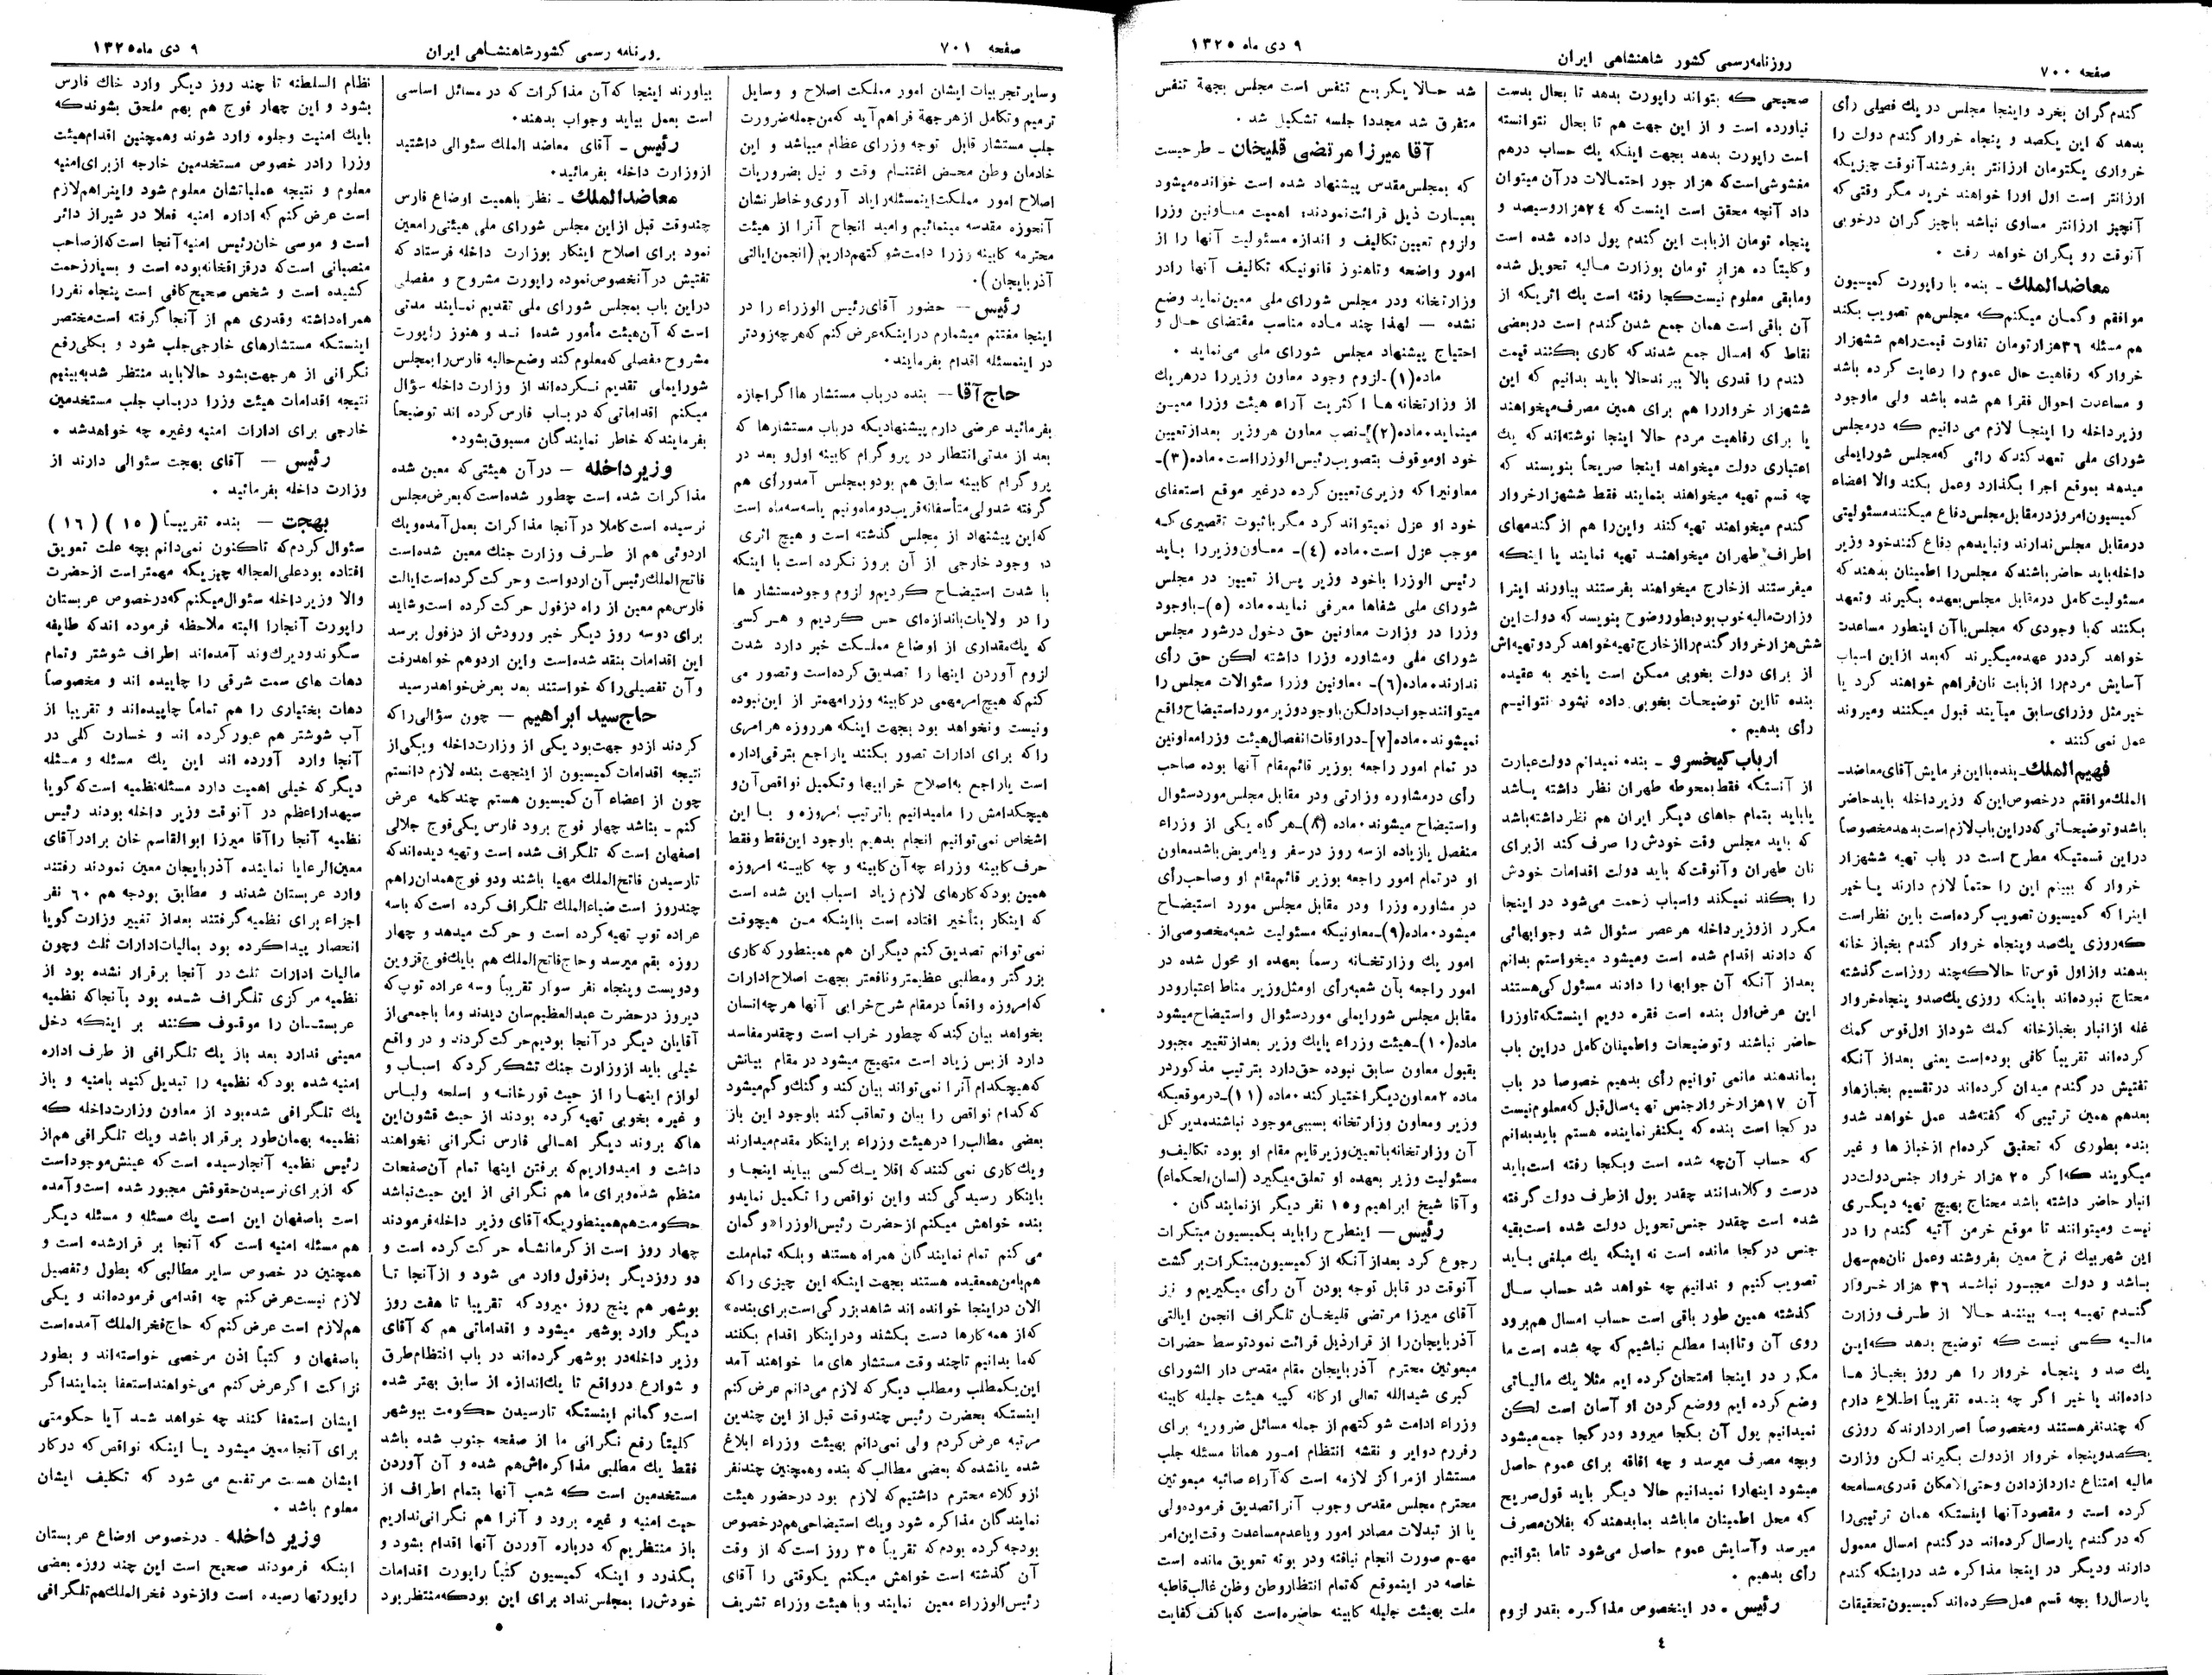 صفحه ۷۰۰
روزنامه‌رسمی کشور شاهنشاهی ایران
۹ دی ماه ۱۳۲۵
گندم گران بخرد واینجا مجلس در یك فصیلی رأی
بدهد که این یکصد و پنجاه خروار گندم دولت را
خرواری یکتومان ارزانتر بفروشند آنوقت چیزیکه
ارزانتر است اول اورا خواهند خرید مگر وقتی که
آنچیز ارزانتر مساوی نباشد باچیز گران درخوبی
آنوقت رو بگران خواهد رفت ۰
معاضدالملك ـ بنده با راپورت کمیسیون
موافقم و گمان میکنم که مجلس هم تصویب بکند
هم مسئله ۳۶هزار تومان تفاوت قیمت راهم ششهزار
خروار که رفاهیت حال عموم را رعایت کرده باشد
و مساعدت احوال فقرا هم شده باشد ولی ماوجود
وزیر داخله را اینجا لازم می دانیم که درمجلس
شورای ملی تعهد کند که رائی که مجلس شورایملی
میدهد بموقع اجرا بگذارد وعمل بکند والا اعضاء
کمیسیون امروز در مقابل مجلس دفاع میکنند مسئولیتی
درمقابل مجلس ندارند ونبایدهم دفاع کنند خود وزیر
داخله باید حاضر باشند که مجلس را اطمینان بدهند که
مسئولیت کامل درمقابل مجلس بعهده بگیرند وتعهد
بکنند که با وجودی که مجلس باآن اینطور مساعدت
خواهد کرد در عهده میگیرند که بعد ازاین اسباب
آسایش مردم را از بابت نان فراهم خواهند کرد یا
خیر مثل وزرای سابق میآیند قبول میکنند ومیروند
عمل نمی کنند ۰
فهیم الملك ـ بنده بااین فرمایش آقای معاضد ـ
الملك موافقم درخصوص این که وزیر داخله باید حاضر
باشد و توضیحاتی که در این باب لازم است بدهد مخصوصاً
دراین قسمتیکه مطرح است در باب تهیه ششهزار
خروار که ببینم این را حتماً لازم دارند یا خیر
اینرا که کمیسیون تصویب کرده‌است باین نظر است
که روزی یك صد و پنجاه خروار گندم بخباز خانه
بدهند وازاول قوس تا حالا که چند روز است گذشته
محتاج نبوده‌اند باینکه روزی یك صد و پنجاه خروار
غله ازانبار بخبازخانه کمك شود از اول قوس کمك
کرده‌اند تقریباً کافی بوده‌است یعنی بعد از آنکه
تفتیش در گندم میدان کرده‌اند درتقسیم بخبازها و
بعدهم همین ترتیبی که گفته شد عمل خواهد شد و
بنده بطوری که تحقیق کرده‌ام ازخباز ها و غیر
میگویند که اگر ۲۵ هزار خروار جنس دولت در
انبار حاضر داشته باشد محتاج بهیچ تهیه دیگری
نیست ومیتوانند تا موقع خرمن آتیه گندم را در
این شهر بیك نرخ معین بفروشند وعمل نان هم سهل
بباشد و دولت مجبور نباشد ۳۶ هزار خروار
گندم تهیه به بینند حالا از طرف وزارت
مالیه کسی نیست که توضیح بدهد که این
یك صد و پنجاه خروار را هر روز بخباز ها
داده‌اند یا خیر اگر چه بنده تقریباً اطلاع دارم
که چند نفر هستند ومخصوصاً اصرار دارند که روزی
یکصد و پنجاه خروار از دولت بگیرند لکن وزارت
مالیه امتناع دارد ازدادن وحتی الامکان قدری مسامحه
کرده است و مقصود آنها اینستکه همان ترتیبی را
که در گندم پارسال کرده‌اند در گندم امسال معمول
دارند ودیگر در اینجا مذاکره شد دراینکه گندم
پارسال را بچه قسم عمل کرده‌اند کمیسیون تحقیقات
صحیحی که بتواند راپورت بدهد تا بحال بدست
نیاورده است و از این جهت هم تا بحال نتوانسته
است راپورت بدهد بجهت اینکه یك حساب درهم
مغشوشی است که هزار جور احتمالات در آن میتوان
داد آنچه محقق است اینست که ۲۴هزار وسیصد و
پنجاه تومان ازبابت این گندم پول داده شده است
وکلیتاً ده هزار تومان بوزارت مالیه تحویل شده
ومابقی معلوم نیست کجا رفته است یك اثریکه از
آن باقی است همان جمع شدن گندم است دربعضی
نقاط که امسال جمع شدند که کاری بکنند قیمت
گندم را قدری بالا ببرند حالا باید بدانیم که این
ششهزار خروار را هم برای همین مصرف میخواهند
یا برای رفاهیت مردم حالا اینجا نوشته‌اند که یك
اعتباری دولت میخواهد اینجا صریحاً بنویسند که
چه قسم تهیه میخواهند بنمایند فقط ششهزار خروار
گندم میخواهند تهیه کنند واین را هم از گندمهای
اطراف طهران میخواهند تهیه نمایند یا اینکه
میفرستند ازخارج میخواهند بفرستند بیاورند اینرا
وزارت مالیه خوب بود بطور وضوح بنویسد که دولت این
شش هزار خروار گندم را ازخارج تهیه خواهد کرد و تهیه اش
از برای دولت بخوبی ممکن است یاخیر به عقیده
بنده تااین توضیحات بخوبی داده نشود نتوانیم
رأی بدهیم ۰
ارباب کیخسرو ـ بنده نمیدانم دولت عبارت
از آنستکه فقط بمحوطه طهران نظر داشته باشد
یاباید بتمام جاهای دیگر ایران هم نظر داشته باشد
که باید مجلس وقت خودش را صرف کند ازبرای
نان طهران و آنوقت که باید دولت اقدامات خودش
را بکند نمیکند واسباب زحمت می‌شود در اینجا
مکرر از وزیر داخله هر عصر سئوال شد و جوابهائی
که دادند اقدام شده است ومیشود میخواستم بدانم
بعد از آنکه آن جوابها را دادند مسئول کی هستند
این عرض اول بنده است فقره دویم اینستکه تاوزرا
حاضر نباشند وتوضیحات واطمینان کامل دراین باب
بماندهند مانمی توانیم رأی بدهیم خصوصا در باب
آن ۱۷هزار خروار جنس تهیه سال قبل که معلوم نیست
در کجا است بنده که یکنفر نماینده هستم باید بدانم
که حساب آن چه شده است وبکجا رفته است باید
درست و کلا بدانند چقدر پول از طرف دولت گرفته
شده است چقدر جنس تحویل دولت شده است بقیه
جنس در کجا مانده است نه اینکه یك مبلغی باید
تصویب کنیم و ندانیم چه خواهد شد حساب سال
گذشته همین طور باقی است حساب امسال هم برود
روی آن وتاابدا مطلع نباشیم که چه شده است ما
مکرر در اینجا امتحان کرده ایم مثلا یك مالیاتی
وضع کرده ایم ووضع کردن او آسان است لکن
نمیدانیم پول آن بکجا میرود ودر کجا جمع میشود
وبچه مصرف میرسد و چه افاقه برای عموم حاصل
میشود اینهارا نمیدانیم حالا دیگر باید قول صریح
که محل اطمینان ماباشد بمابدهند که بفلان مصرف
میرسد وآسایش عموم حاصل می‌شود تاما بتوانیم
رأی بدهیم ۰
رئیس ـ در اینخصوص مذاکره بقدر لزوم
شد حالا یکربع تنفس است مجلس بجهة تنفس
متفرق شد مجددا جلسه تشکیل شد ۰
آقا میرزا مرتضی قلیخان ـ طرحیست
که بمجلس مقدس پیشنهاد شده است خوانده میشود
بعبارت ذیل قرائت نمودند: اهمیت معاونین وزرا
ولزوم تعیین تکالیف و اندازه مسئولیت آنها را از
امور واضحه وتاهنوز قانونیکه تکالیف آنها رادر
وزارتخانه ودر مجلس شورای ملی معین نماید وضع
نشده — لهذا چند ماده مناسب مقتضای حال و
احتیاج پیشنهاد مجلس شورای ملی می‌نماید ۰
ماده (۱) ـ لزوم وجود معاون وزیر را درهر یك
از وزارتخانه ها اکثریت آراء هیئت وزرا معین
مینماید ۰ ماده (۲) ـ نصب معاون هر وزیر بعد از تعیین
خود او موقوف بتصویب رئیس الوزرا است ۰ ماده (۳) ـ
معاونیرا که وزیری تعیین کرده درغیر موقع استعفای
خود او عزل نمیتواند کرد مگر با ثبوت تقصیری که
موجب عزل است ۰ ماده (٤) ـ معاون وزیر را باید
رئیس الوزرا باخود وزیر پس از تعیین در مجلس
شورای ملی شفاها معرفی نماید ۰ ماده (۵) ـ باوجود
وزرا در وزارت معاونین حق دخول درشور مجلس
شورای ملی ومشاوره وزرا داشته لکن حق رأی
ندارند ۰ ماده (٦) ـ معاونین وزرا سئوالات مجلس را
میتوانند جواب داد لکن باوجود وزیر مورد استیضاح واقع
نمیشوند ۰ ماده [۷] ـ دراوقات انفصال هیئت وزرا معاونین
در تمام امور راجعه بوزیر قائم مقام آنها بوده صاحب
رأی درمشاوره وزارتی ودر مقابل مجلس مورد سئوال
واستیضاح میشوند ۰ ماده (۸) ـ هر گاه یکی از وزراء
منفصل یازیاده ازسه روز درسفر ویامریض باشد معاون
او در تمام امور راجعه بوزیر قائم مقام او وصاحب رأی
در مشاوره وزرا ودر مقابل مجلس مورد استیضاح
میشود ۰ ماده (۹) ـ معاونیکه مسئولیت شعبه مخصوصی از
امور یك وزارتخانه رسماً بعهده او محول شده در
امور راجعه بآن شعبه رأی او مثل وزیر مناط اعتبار ودر
مقابل مجلس شورایملی مورد سئوال واستیضاح میشود
ماده (۱۰) ـ هیئت وزراء یایك وزیر بعد از تغییر مجبور
بقبول معاون سابق نبوده حق دارد بترتیب مذکور در
ماده ۲ معاون دیگر اختیار کند ۰ ماده (۱۱) ـ در موقعیکه
وزیر ومعاون وزارتخانه بسببی موجود نباشند مدیر کل
آن وزارتخانه با تعیین وزیر قایم مقام او بوده تکالیف و
مسئولیت وزیر بعهده او تعلق میگیرد (لسان الحکماء)
و آقا شیخ ابراهیم و ۱۵ نفر دیگر از نمایندگان ۰
رئیس — اینطرح را باید بکمیسیون مبتکرات
رجوع کرد بعد از آنکه از کمیسیون مبتکرات برگشت
آنوقت در قابل توجه بودن آن رأی میگیریم و نیز
آقای میرزا مرتضی قلیخان تلگراف انجمن ایالتی
آذربایجان را از قرار ذیل قرائت نمود توسط حضرات
مبعوثین محترم آذربایجان مقام مقدس دار الشورای
کبری شیدالله تعالی ارکانه کپیه هیئت جلیله کابینه
وزراء ادامت شوکتهم از جمله مسائل ضروریه برای
رفرم دوایر و نقشه انتظام امور همانا مسئله جلب
مستشار ازمراکز لازمه است که آراء صائبه مبعوثین
محترم مجلس مقدس وجوب آنرا تصدیق فرموده ولی
یا از تبدلات مصادر امور ویاعدم مساعدت وقت این امر
مهم صورت انجام نیافته ودر بوته تعویق مانده است
خاصه در اینموقع که تمام انتظار وطن وظن غالب قاطبه
ملت بهیئت جلیله کابینه حاضره است که با کف کفایت
٤
صفحه ۷۰۱
ورنامه رسمی کشور شاهنشاهی ایران
۹ دی ماه ۱۳۲۵
وسایر تجربیات ایشان امور مملکت اصلاح و وسایل
ترمیم و تکامل از هر جهة فراهم آید که من جمله ضرورت
جلب مستشار قابل توجه وزرای عظام میباشد و این
خادمان وطن محض اغتنام وقت و نیل بضروریات
اصلاح امور مملکت اینمسئله را یاد آوری و خاطر نشان
آنحوزه مقدسه مینمائیم وامید انجاح آنرا از هیئت
محترمه کابینه وزرا دامت شوکتهم داریم (انجمن ایالتی
آذربایجان) ۰
رئیس — حضور آقای رئیس الوزراء را در
اینجا مغتنم میشمارم در اینکه عرض کنم که هرچه زودتر
در اینمسئله اقدام بفرمایند ۰
حاج آقا — بنده درباب مستشار ها اگر اجازه
بفرمائید عرضی دارم پیشنهادیکه درباب مستشارها که
بعد از مدتی انتظار در پروگرام کابینه اول و بعد در
پروگرام کابینه سابق هم بود و بمجلس آمد و رأی هم
گرفته شد ولی متأسفانه قریب دوماه و نیم یاسه سه ماه است
که این پیشنهاد از مجلس گذشته است و هیچ اثری
در وجود خارجی از آن بروز نکرده است با اینکه
با شدت استیضاح کردیم و لزوم وجود مستشار ها
را در ولایات باندازه‌ای حس کردیم و هر کسی
که یك مقداری از اوضاع مملکت خبر دارد شدت
لزوم آوردن اینها را تصدیق کرده‌است وتصور می
کنم که هیچ امر مهمی در کابینه وزرا مهمتر از این نبوده
ونیست ونخواهد بود بجهت اینکه هر روزه هر امری
راکه برای ادارات تصور بکنند یاراجع بترقی اداره
است یاراجع به‌اصلاح خرابیها و تکمیل نواقص آن و
هیچکدامش را مامیدانیم باترتیب امروزه و با این
اشخاص نمی‌توانیم انجام بدهیم باوجود این فقط و فقط
حرف کابینه وزراء چه آن کابینه و چه کابینه امروزه
همین بود که کارهای لازم زیاد اسباب این شده است
که اینکار بتأخیر افتاده است بااینکه من هیچوقت
نمی توانم تصدیق کنم دیگران هم همینطور که کاری
بزرگتر ومطلبی عظیمتر ونافعتر بجهت اصلاح ادارات
که امروزه واقعاً درمقام شرح خرابی آنها هرچه انسان
بخواهد بیان کند که چطور خراب است وچقدر مفاسد
دارد ازبس زیاد است متهیج میشود در مقام بیانش
که هیچکدام آنرا نمی‌تواند بیان کند و گنك و گم میشود
که کدام نواقص را بیان و تعاقب کند باوجود این باز
بعضی مطالب را درهیئت وزراء بر اینکار مقدم میدارند
ویك کاری نمی کنند که اقلا یك کسی بیاید اینجا و
باینکار رسیدگی کند واین نواقص را تکمیل نماید و
بنده خواهش میکنم از حضرت رئیس الوزرا «و گمان
می کنم تمام نمایندگان همراه هستند وبلکه تمام ملت
هم بامن همعقیده هستند بجهت اینکه این چیزی راکه
الان در اینجا خوانده اند شاهد بزرگی است برای بنده»
که از همه کارها دست بکشند ودر اینکار اقدام بکنند
که ما بدانیم تاچند وقت مستشار های ما خواهند آمد
این یکمطلب ومطلب دیگر که لازم می‌دانم عرض کنم
اینستکه بحضرت رئیس چند وقت قبل از این چندین
مرتبه عرض کردم ولی نمی‌دانم بهیئت وزراء ابلاغ
شده یانشده که بعضی مطالب که بنده وهمچنین چند نفر
ازوکلاء محترم داشتیم که لازم بود درحضور هیئت
نمایندگان مذاکره شود ویك استیضاحی هم درخصوص
بودجه کرده بودم که تقریباً ۳۵ روز است که از وقت
آن گذشته است خواهش میکنم یکوقتی را آقای
رئیس الوزراء معین نمایند وبا هیئت وزراء تشریف
بیاورند اینجا که آن مذاکرات که در مسائل اساسی
است بعمل بیاید وجواب بدهند ۰
رئیس ـ آقای معاضد الملك سئوالی داشتید
ازوزارت داخله بفرمائید ۰
معاضدالملك ـ نظر باهمیت اوضاع فارس
چندوقت قبل ازاین مجلس شورای ملی هیئتی رامعین
نمود برای اصلاح اینکار بوزارت داخله فرستاد که
تفتیش در آنخصوص نموده راپورت مشروح و مفصلی
دراین باب بمجلس شورای ملی تقدیم نمایند مدتی
است که آن هیئت مأمور شده‌اند و هنوز راپورت
مشروح مفصلی که معلوم کند وضع حالیه فارس را بمجلس
شورایملی تقدیم نکرده‌اند از وزارت داخله سؤال
میکنم اقداماتی که درباب فارس کرده اند توضیحاً
بفرمایند که خاطر نمایندگان مسبوق بشود ۰
وزیر داخله — در آن هیئتی که معین شده
مذاکرات شده است چطور شده است که بعرض مجلس
نرسیده است کاملا در آنجا مذاکرات بعمل آمده ویك
اردوئی هم از طرف وزارت جنك معین شده‌است
فاتح الملك رئیس آن اردو است وحرکت کرده‌است ایالت
فارس هم معین از راه دزفول حرکت کرده است و شاید
برای دوسه روز دیگر خبر ورودش از دزفول برسد
این اقدامات بنقد شده‌است واین اردوهم خواهد رفت
و آن تفصیلی را که خواستند بعد بعرض خواهد رسید
حاج سید ابراهیم — چون سؤالی راکه
کردند ازدو جهت بود یکی از وزارت داخله ویکی از
نتیجه اقدامات کمیسیون از اینجهت بنده لازم دانستم
چون از اعضاء آن کمیسیون هستم چند کلمه عرض
کنم ـ بناشد چهار فوج برود فارس یکی فوج جلالی
اصفهان است که تلگراف شده است و تهیه دیده‌اند که
تارسیدن فاتح الملك مهیا باشند ودو فوج همدان راهم
چند روز است ضیاءالملك تلگراف کرده است که باسه
عراده توپ تهیه کرده است و حرکت میدهد و چهار
روزه بقم میرسد وحاج فاتح الملك هم بایك فوج قزوین
ودویست وپنجاه نفر سوار تقریباً وسه عراده توپ که
دیروز درحضرت عبدالعظیم سان دیدند وما باجمعی از
آقایان دیگر در آنجا بودیم حرکت کردند و در واقع
خیلی باید ازوزارت جنك تشکر کرد که اسباب و
لوازم اینها را از حیث قورخانه و اسلحه ولباس
و غیره بخوبی تهیه کرده بودند از حیث قشون این
هاکه بروند دیگر اهالی فارس نگرانی نخواهند
داشت و امیدواریم که برفتن اینها تمام آن صفحات
منظم شده و برای ما هم نگرانی از این حیث نباشد
حکومت هم همینطوریکه آقای وزیر داخله فرمودند
چهار روز است از کرمانشاه حرکت کرده است و
دو روز دیگر بدزفول وارد می شود و از آنجا تا
بوشهر هم پنج روز میرود که تقریبا تا هفت روز
دیگر وارد بوشهر میشود و اقداماتی هم که آقای
وزیر داخله در بوشهر کرده‌اند در باب انتظام طرق
و شوارع درواقع تا یك اندازه از سابق بهتر شده
است و گمانم اینستکه تارسیدن حکومت ببوشهر
کلیتاً رفع نگرانی ما از صفحه جنوب شده باشد
فقط یك مطلبی مذاکره‌اش هم شده و آن آوردن
مستخدمین است که شعب آنها بتمام اطراف از
حیث امنیه و غیره برود و آنرا هم نگرانی نداریم
باز منتظریم که درباره آوردن آنها اقدام بشود و
بگذرد و اینکه کمیسیون کتباً راپورت اقدامات
خودش را بمجلس نداد برای این بود که منتظر بود
نظام السلطنه تا چند روز دیگر وارد خاك فارس
بشود و این چهار فوج هم بهم ملحق بشوند که
بایك امنیت وجلوه وارد شوند وهمچنین اقدام هیئت
وزرا رادر خصوص مستخدمین خارجه ازبرای امنیه
معلوم و نتیجه عملیاتشان معلوم شود واینراهم لازم
است عرض کنم که اداره امنیه فعلا در شیراز دائر
است و موسی خان رئیس امنیه آنجا است که از صاحب
منصبانی است که در قزاقخانه بوده است و بسیار زحمت
کشیده است و شخص صحیح کافی است پنجاه نفر را
همراه داشته وقدری هم از آنجا گرفته است مختصر
اینستکه مستشارهای خارجی جلب شود و بکلی رفع
نگرانی از هر جهت بشود حالا باید منتظر شد به‌بینیم
نتیجه اقدامات هیئت وزرا درباب جلب مستخدمین
خارجی برای ادارات امنیه وغیره چه خواهد شد ۰
رئیس — آقای بهجت سئوالی دارند از
وزارت داخله بفرمائید ۰
بهجت — بنده تقریباً (۱۵) (۱٦)
سئوال کردم که تاکنون نمی‌دانم بچه علت تعویق
افتاده بود علی العجاله چیزیکه مهمتر است ازحضرت
والا وزیر داخله سئوال میکنم که درخصوص عربستان
راپورت آنجارا البته ملاحظه فرموده اند که طایفه
سگوند ودیرك وند آمده‌اند اطراف شوشتر وتمام
دهات های سمت شرقی را چاپیده اند و مخصوصاً
دهات بختیاری را هم تماماً چاپیده‌اند و تقریبا از
آب شوشتر هم عبور کرده اند و خسارت کلی در
آنجا وارد آورده اند این یك مسئله و مسئله
دیگر که خیلی اهمیت دارد مسئله نظمیه است که گویا
سپهدار اعظم در آنوقت وزیر داخله بودند رئیس
نظمیه آنجا را آقا میرزا ابوالقاسم خان برادر آقای
معین الرعایا نماینده آذربایجان معین نمودند رفتند
وارد عربستان شدند و مطابق بودجه هم ٦۰ نفر
اجزاء برای نظمیه گرفتند بعد از تغییر وزارت گویا
انحصار پیدا کرده بود بمالیات ادارات ثلث وچون
مالیات ادارات ثلث در آنجا برقرار نشده بود از
نظمیه مرکزی تلگراف شده بود بآنجا که نظمیه
عربستان را موقوف کنند بر اینکه دخل
معینی ندارد بعد باز یك تلگرافی از طرف اداره
امنیه شده بود که نظمیه را تبدیل کنید بامنیه و باز
یك تلگرافی شده بود از معاون وزارت داخله که
نظمیه بهمان طور برقرار باشد ویك تلگرافی هم از
رئیس نظمیه آنجا رسیده است که عینش موجود است
که ازبرای نرسیدن حقوقش مجبور شده است و آمده
است باصفهان این است یك مسئله و مسئله دیگر
هم مسئله امنیه است که آنجا بر قرار شده است و
همچنین در خصوص سایر مطالبی که بطول وتفصیل
لازم نیست عرض کنم چه اقدامی فرموده‌اند و یکی
هم لازم است عرض کنم که حاج فخر الملك آمده‌است
باصفهان و کتباً اذن مرخصی خواسته‌اند و بطور
نزاکت اگر عرض کنم می‌خواهند استعفا بنمایند اگر
ایشان استعفا کنند چه خواهد شد آیا حکومتی
برای آنجا معین میشود یا اینکه نواقص که در کار
ایشان هست مرتفع می شود که تکلیف ایشان
معلوم باشد ۰
وزیر داخله ـ درخصوص اوضاع عربستان
اینکه فرمودند صحیح است این چند روزه بعضی
راپورتها رسیده است وازخود فخر الملك هم تلگرافی
۵